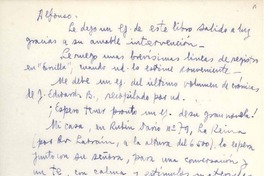 Alfonso:
Le dejo un ej. de este libro salido a luz
gracias a su amable intervención.
Le ruego unas brevísimas líneas de registro
en "Ercilla", cuando ud. lo estime conveniente.
Me debe un ej. del último volumen de crónicas
de J. Edwards B., recopilado por ud.
¡Espero tener pronto un ej. de su gran novela!
Mi casa, en Rubén Darío Nº 79, La Reina
por Av. Larraín, a la altura del 6.600, lo espera
junto con su señora, para una conversación y
un té, con calma y estímulos